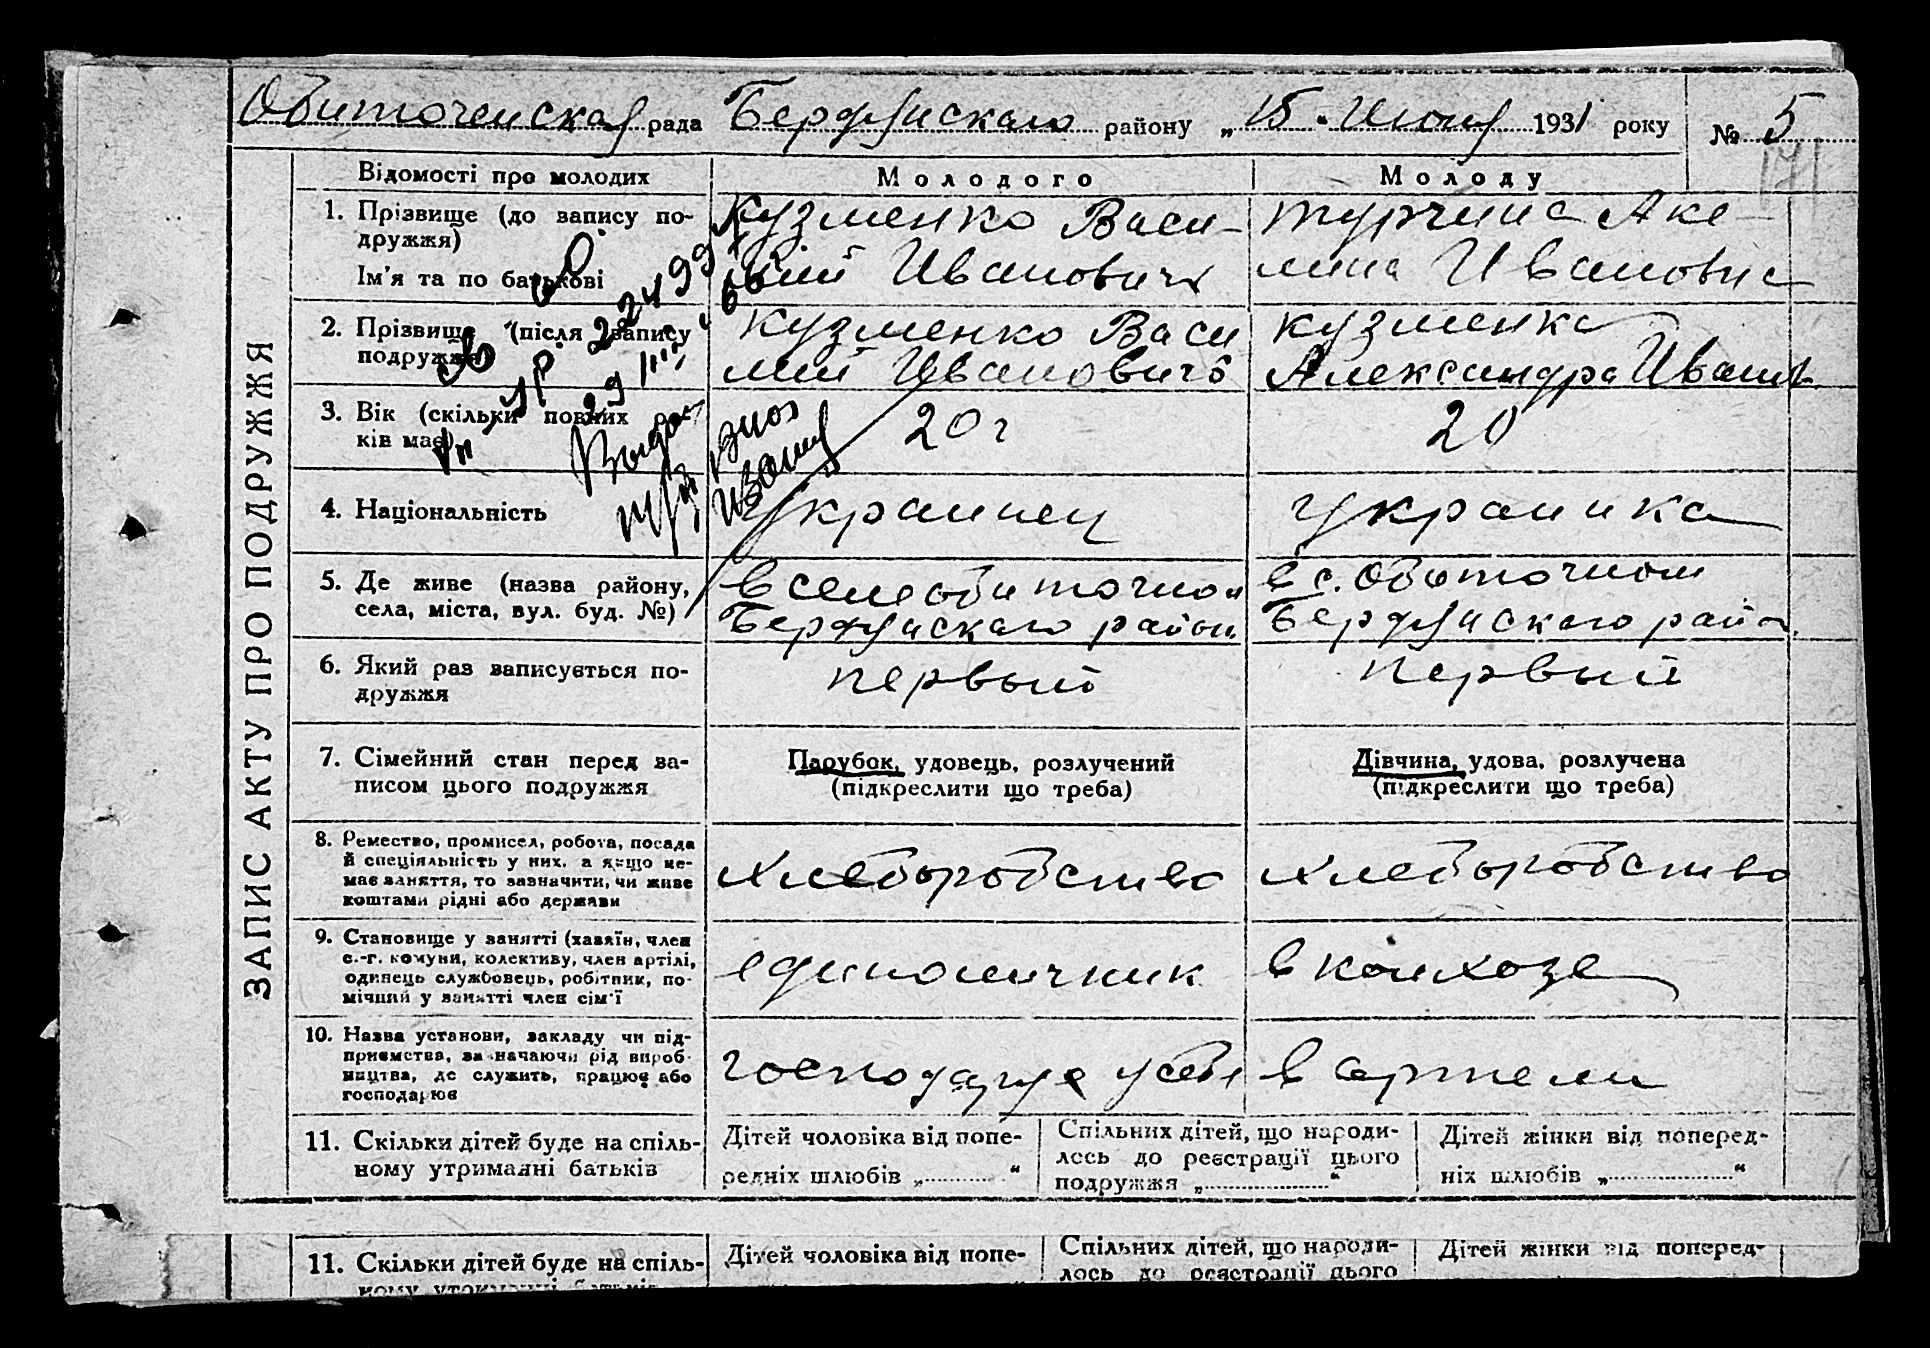 Обиточенская рада Бердянскаго району „15“ Июня 1931 року № 5
171
ЗАПИС АКТУ ПРО ПОДРУЖЖЯ
Відомості про молодих Молодого Молоду
1. Прізвище (до запису по-
дружжя)
Ім'я та по батькові
Кузменко Васи-
лий Иванович
Турчина Аке-
лина Ивановна
2. Прізвище (після запису
подружжя)
Кузменко Васи
лий Иванович
Кузменко
Александра Иванов
3. Вік (скільки повних ро-
ків має)
20 г
20
Выдан
4. Національність
украинец
украинка
5. Де живе (назва району,
села, міста, вул. буд. №)
в селе обиточном
Бердянскаго район.
в с. Обиточном
Бердянскаго район.
6. Який раз записується по-
дружжя
первый
первый
7. Сімейний стан перед за-
писом цього подружжя
Парубок, удовець, розлучений
(підкреслити що треба)
Дівчина, удова, розлучена
(підкреслити що треба)
8. Ремество, промисел, робота, посада
й спеціяльність у них, а якщо не-
має заняття, то зазначити, чи живе
коштами рідні або держави
хлеборобство
хлеборобство
9. Становище у занятті (хазяїн, член
с.-г. комуни, колективу, член артілі,
одинець службовець, робітник, по-
мічний у занятті член сім'ї
единоличник
в колхозе
10. Назва установи, закладу чи під-
приємства, зазначаючи рід вироб-
ництва, де служить, працює або
господарює
господарує у себе
в артели
11. Скільки дітей буде на спіль-
ному утриманні батьків
Дітей чоловіка від попе-
редніх шлюбів „............“
Спільних дітей, що народи-
лось до реєстрації цього
подружжя „............“
Дітей жінки від поперед-
ніх шлюбів „............“
11. Скільки дітей буде на спіль-
ному утриманні батьків
Дітей чоловіка від попе-
Спільних дітей, що народи-
лось до реєстрації цього
Дітей жінки від поперед-